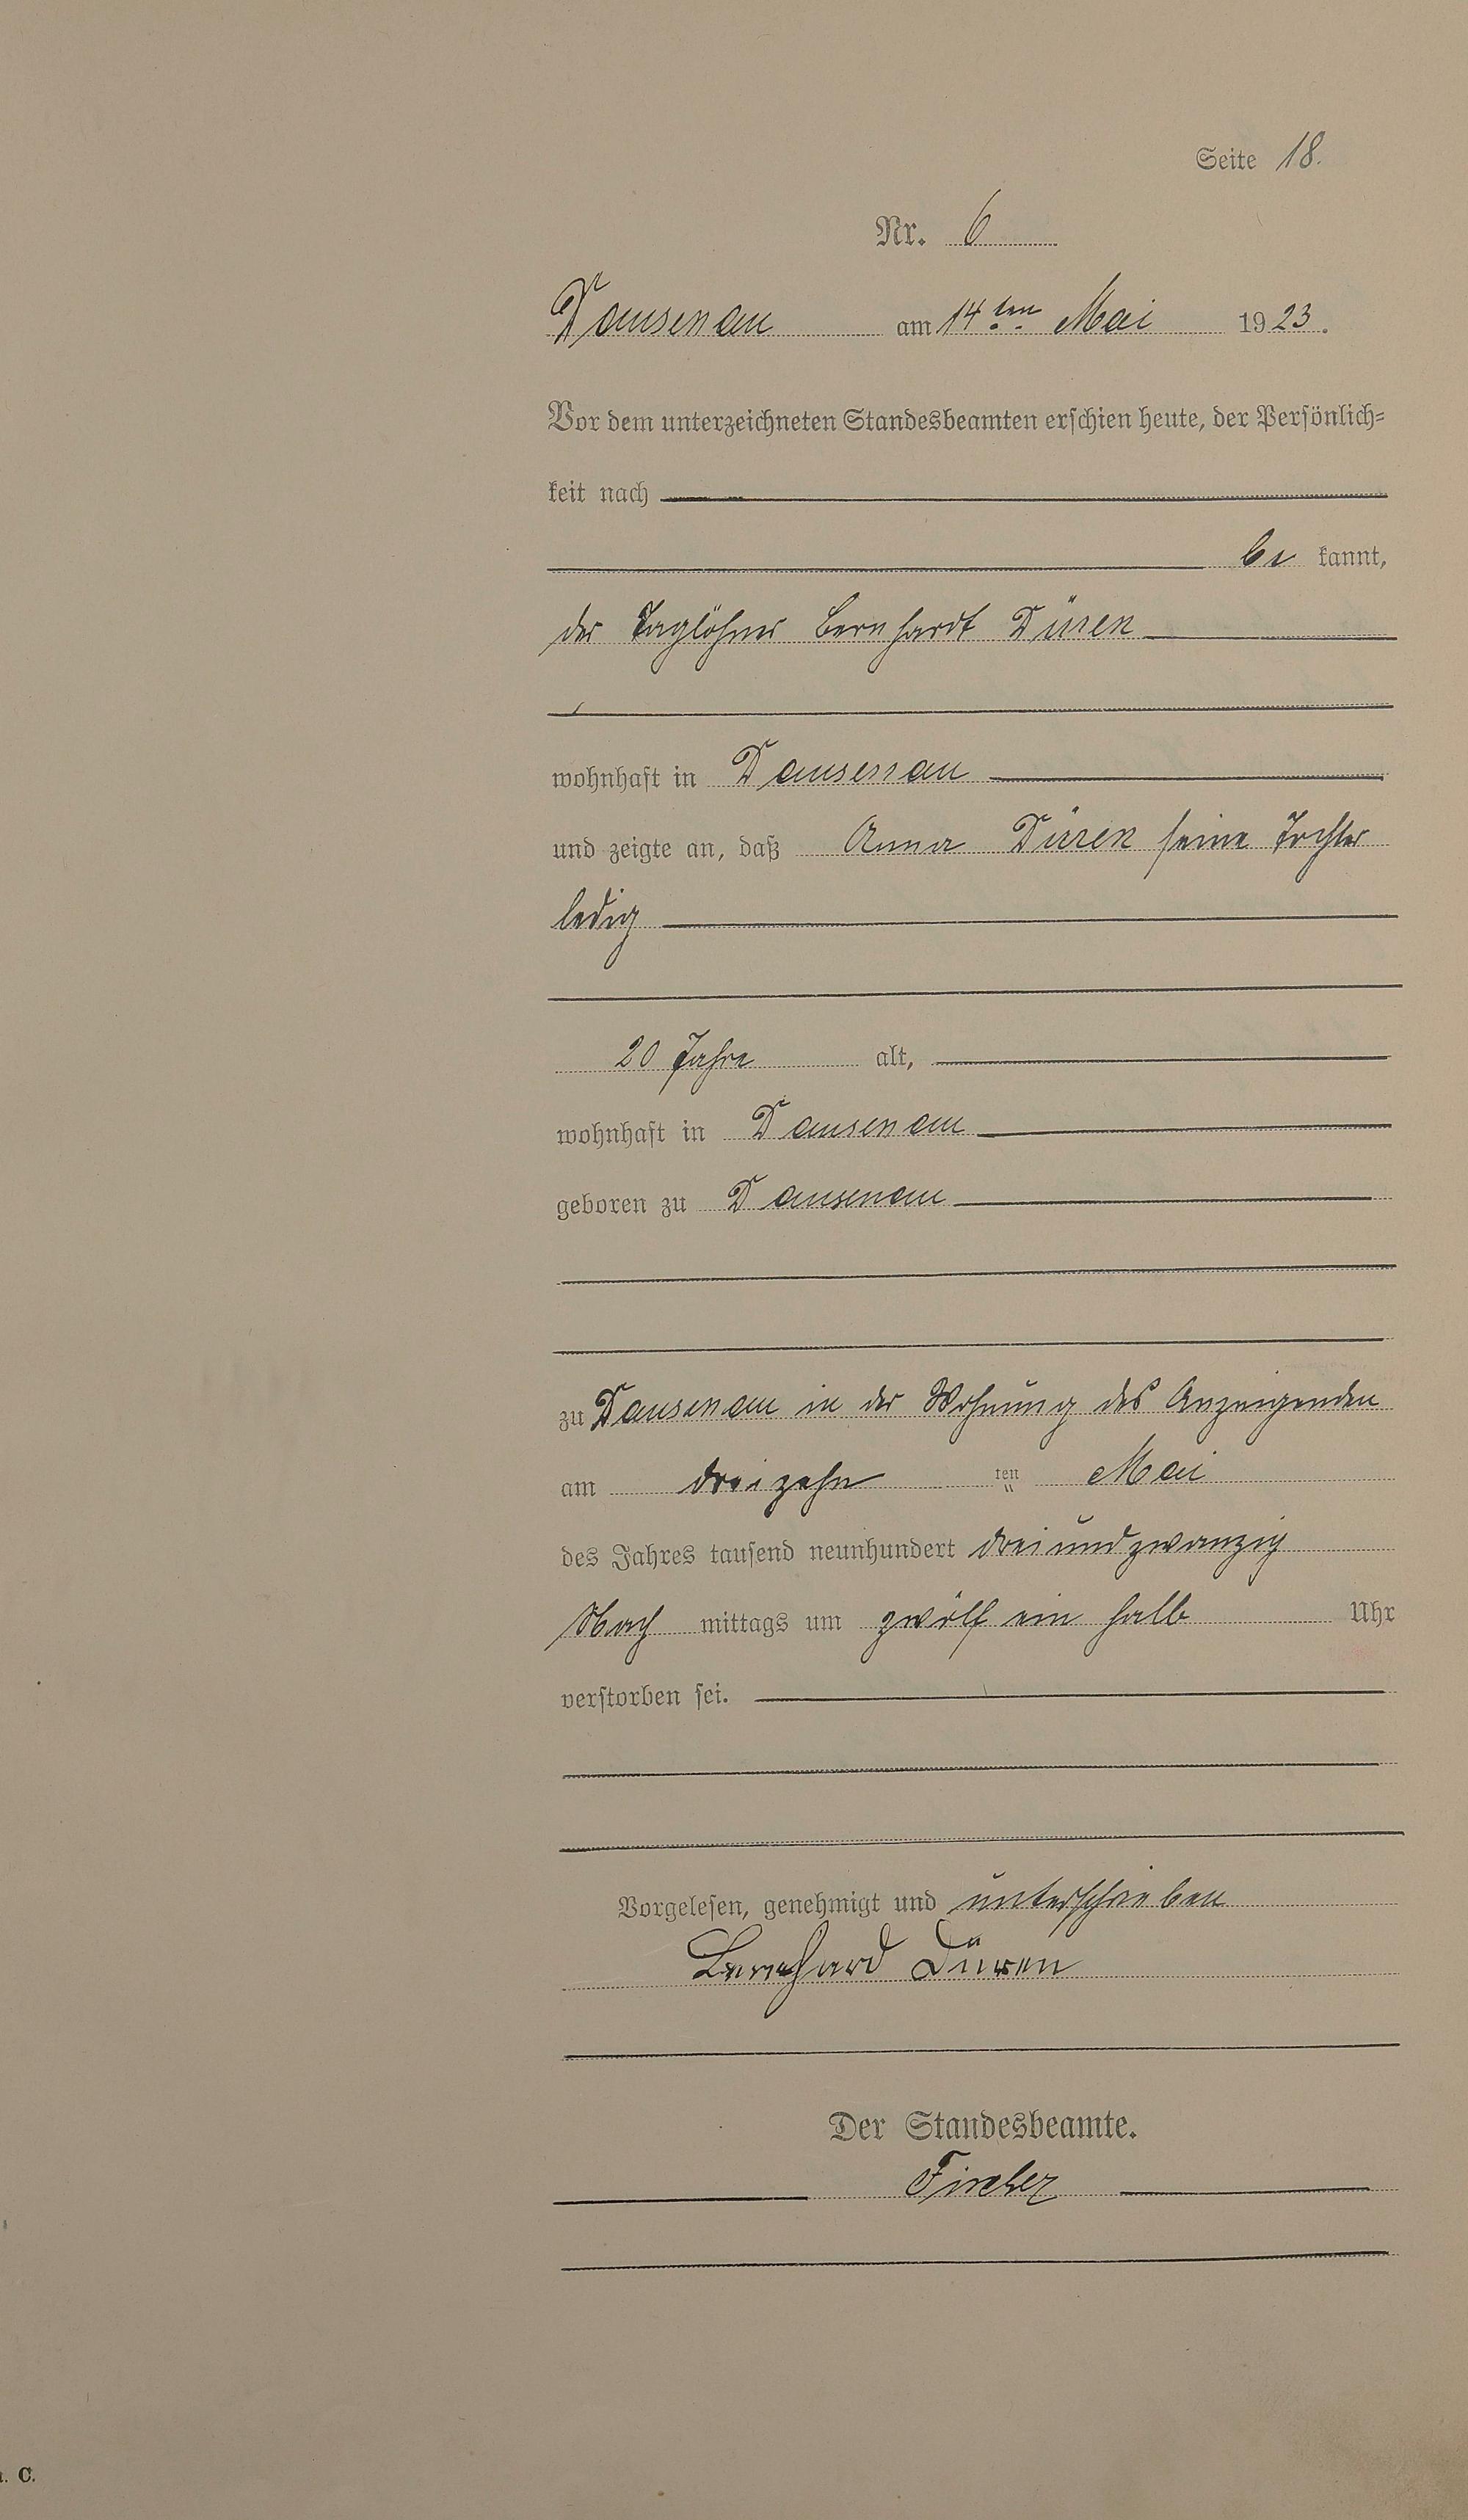 Seite 18.
Nr. 6
Dausenau am 14ten Mai 1923.
Vor dem unterzeichneten Standesbeamten erschien heute, der Persönlich-
keit nach
be kannt,
der Taglöhner Bernhardt Düren
wohnhaft in Dausenau
und zeigte an, daß Anna Düren seine Tochter
ledig
20 Jahre alt,
wohnhaft in Dausenau
geboren zu Dausenau
zu Dausenau in der Wohnung des Anzeigenden
am dreizehn ten Mai
des Jahres tausend neunhundert dreiundzwanzig
Nach mittags um zwölf ein halb Uhr
verstorben sei.
Vorgelesen, genehmigt und unterschrieben
Bernhard Düren
Der Standesbeamte.
Fischer
C.